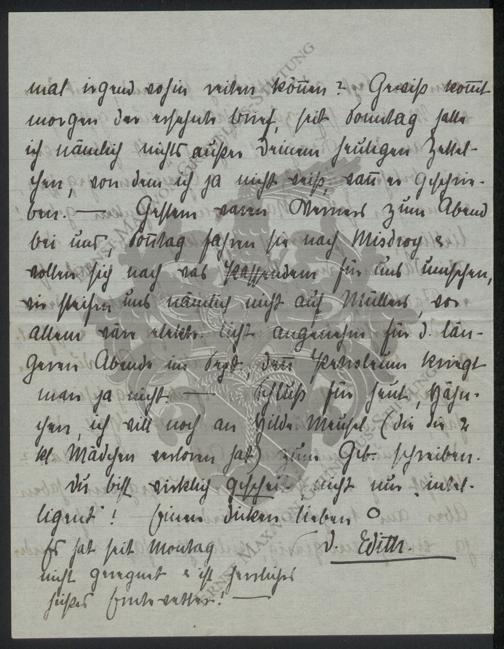 mal irgend wohin reiten kön̅en? Gewiß kom̅t
morgen der ersehnte Brief, seit Sonntag hatte
ich nämlich nichts außer Deinem heutigen Zettel-
chen, von dem ich ja nicht weiß, wan̅ er geschrie-
ben. — Gestern waren Werners zum Abend
bei uns, Son̅tag fahren sie nach Misdroy &
wollen sich nach was Passendem für uns umsehen,
wir steifen uns nämlich nicht auf Müllers, vor
allem wäre elektr. Licht angenehm für d. län-
geren Abende im Sept., den̅ Petroleum kriegt
man ja nicht. — Schluß für heute, Hähn-
chen, ich will noch an Hilde Meusel (die die 2
kl. Mädchen verloren hat) zum Geb. schreiben.
Du bist wirklich gescheit, nicht nur "intel-
ligent"! Einen dicken lieben O
D. Edith.
Es hat seit Montag
nicht geregnet & ist herrliches
heißes Erntewetter. —
ERNST MAX
STIFTUNG